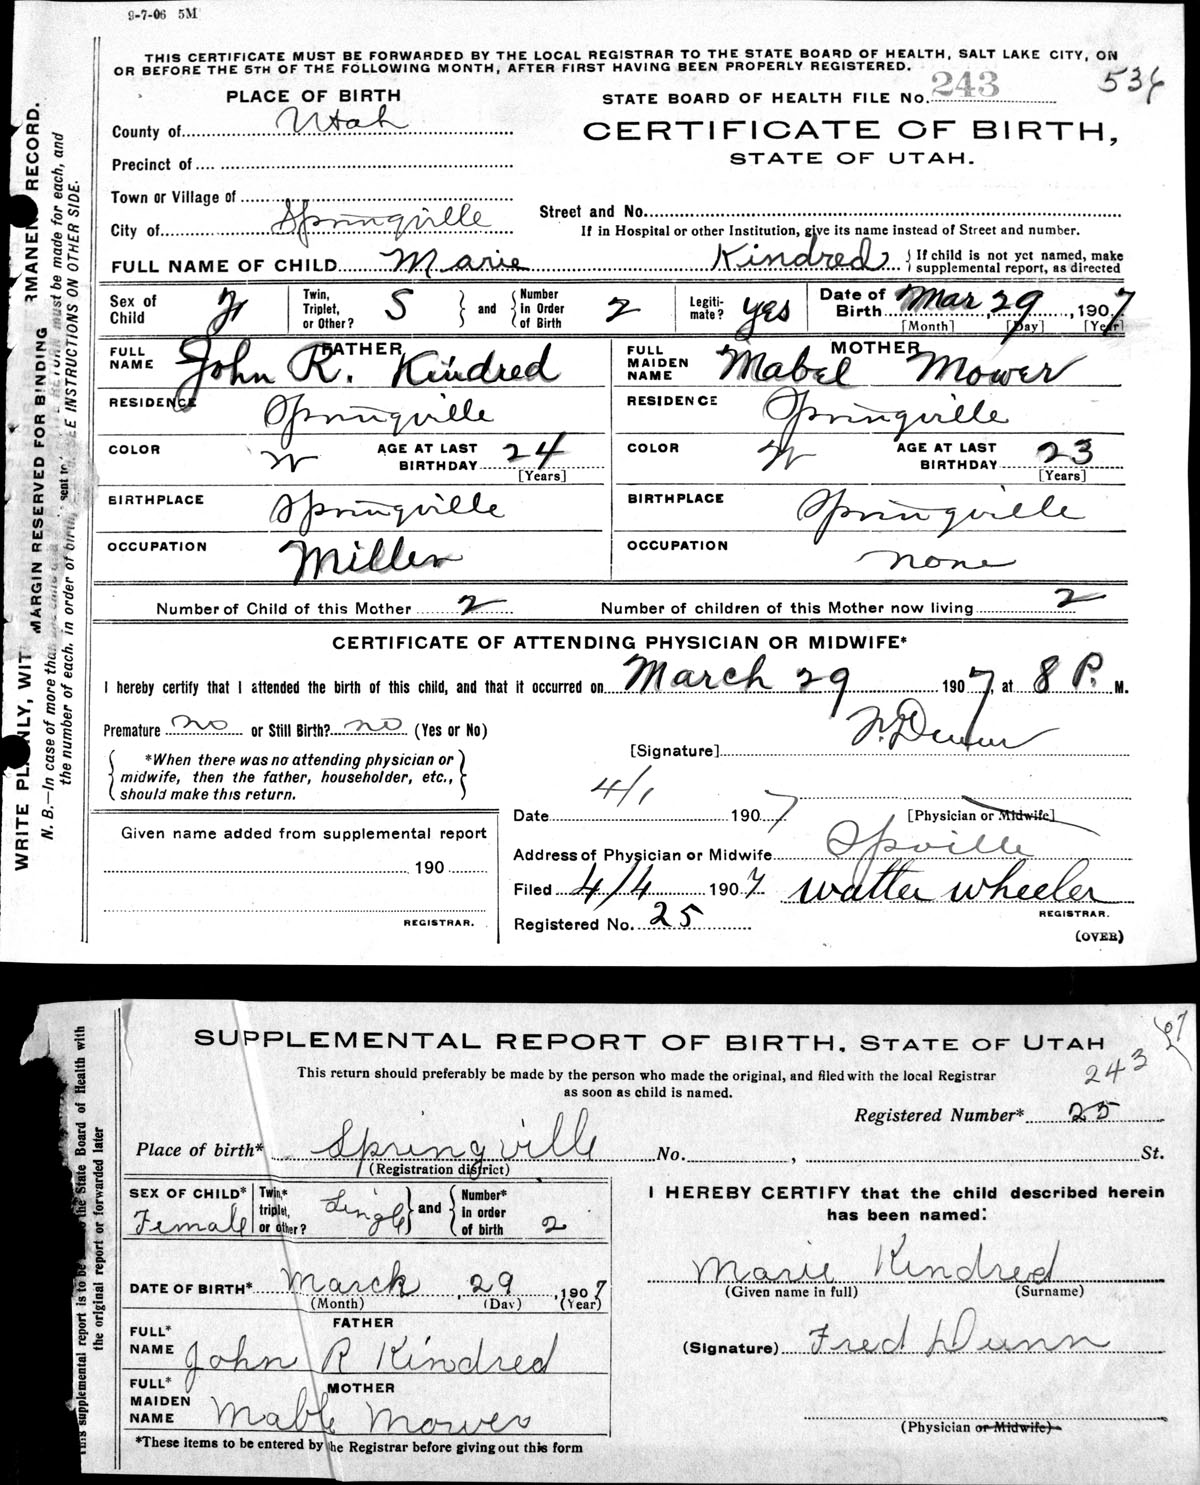 9-7-06 5M
THIS CERTIFICATE MUST BE FORWARDED BY THE LOCAL REGISTRAR TO THE STATE BOARD OF HEALTH, SALT LAKE CITY, ON
OR BEFORE THE 5TH OF THE FOLLOWING MONTH, AFTER FIRST HAVING BEEN PROPERLY REGISTERED.
PLACE OF BIRTH
STATE BOARD OF HEALTH FILE No. 243
536
County of Utah
CERTIFICATE OF BIRTH,
STATE OF UTAH.
Precinct of
Town or Village of
Street and No.
City of Springville
If in Hospital or other Institution, give its name instead of Street and number.
FULL NAME OF CHILD Marie Kindred { If child is not yet named, make
supplemental report, as directed
Sex of Child F
Twin, Triplet, or Other? S } and { Number in Order of Birth 2
Legiti-mate? yes
Date of Birth Mar 29, 1907
[Month] [Day] [Year]
FATHER
FULL NAME John R. Kindred
MOTHER
FULL MAIDEN NAME Mabel Mower
RESIDENCE Springville
RESIDENCE Springville
COLOR W AGE AT LAST BIRTHDAY 24 [Years]
COLOR W AGE AT LAST BIRTHDAY 23 [Years]
BIRTHPLACE Springville
BIRTHPLACE Springville
OCCUPATION Miller
OCCUPATION none
Number of Child of this Mother 2 Number of children of this Mother now living 2
CERTIFICATE OF ATTENDING PHYSICIAN OR MIDWIFE*
I hereby certify that I attended the birth of this child, and that it occurred on March 29 1907, at 8 P. M.
Premature no or Still Birth? no (Yes or No)
[Signature]
*When there was no attending physician or
midwife, then the father, householder, etc.,
should make this return.
Date 4/1 1907
[Physician or Midwife]
Given name added from supplemental report
Address of Physician or Midwife Spville
190
Filed 4/4 1907 Walter Wheeler
REGISTRAR.
REGISTRAR.
Registered No. 25
(OVER)
WRITE PLAINLY, WIT
MARGIN RESERVED FOR BINDING
RMANENT RECORD.
N. B.—In case of more than
must be made for each, and
the number of each, in order of birth,
SEE INSTRUCTIONS ON OTHER SIDE.
SUPPLEMENTAL REPORT OF BIRTH, STATE OF UTAH
This return should preferably be made by the person who made the original, and filed with the local Registrar
as soon as child is named.
243
Registered Number* 25
Place of birth* Springville No. , St.
(Registration district)
SEX OF CHILD* Female
Twin,* triplet, or other? Single } and { Number* in order of birth 2
I HEREBY CERTIFY that the child described herein
has been named:
Marie Kindred
(Given name in full) (Surname)
DATE OF BIRTH* March, 29, 1907
(Month) (Day) (Year)
FATHER
FULL* NAME John R Kindred
(Signature) Fred Dunn
MOTHER
FULL* MAIDEN NAME Mable Mower
(Physician or Midwife)
*These items to be entered by the Registrar before giving out this form
This supplemental report is to be
the State Board of Health with
the original report or forwarded later